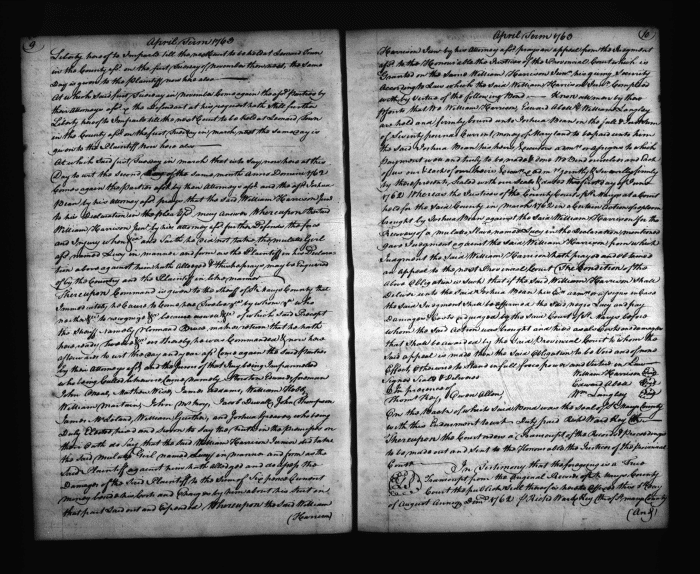 9
April Term 1763
Liberty hereof to Imparle till the next Court to be held at Leonard Town
in the County afsd on the first Tuesday of November then next, the same
day is given to the plaintiff now here also
At which said first Tuesday in November Comes again the afsd parties by
their Attorneys afsd & the Defendant at his request hath Still further
Liberty hereof to Imparle till the next Court to be held at Leonard Town
in the County afsd on the first Tuesday in march next the same day is
given to the Plaintiff Now here also
At which said first Tuesday in march that is to Say, now here at this
Day to wit the Second day of the same month Anno Domini 1762
Comes again the parties afsd by their Attorneys afsd and the afsd Joshua
Bean by his attorney afsd prays that the said William Harrison Junr
to his Declaration in the plea afsd may Answer Whereupon the said
William Harrison Junr by his attorney afsd further Defends the force
and Injury when &c and Saith he did not take the mulatto Girl
afsd named Lucy in manner and form as the Plaintiff in his Declaration
above against him hath Alledged & this he prays may be Enquired
of by the Country and the Plaintiff in like manner &c
Thereupon Command is given to the Sheriff of St Marys County that
Immediately he Cause to Come here Twelve &c by whom &c & who
neither &c to recognize &c because as well &c of which said Precept
the Sheriff namely Normand Bruce makes return that he hath
here ready Twelve &c as thereby he was Commanded & now here
afterwards to wit the day and year afsd Come again the said parties
by their Attorneys afsd and the Jurors of that Jury being Impannelled
who being Called likewise Came namely Thurston Edmonds foreman
John Mathew Wise James Jordan William Hebb
William Martain John McKay Jacob Duvall John Thompson
James William and Joshua Greaves who being
Duly Elected tried and sworn to Say the truth in the premises on
their Oath do Say that the said William Harrison Junior did take
the said Mulatto Girl named Lucy in manner and form as the
Said Plaintiff against him hath alledged and do assess the
Damages of the Said Plaintiff to the Sum of Six pence Current
money besides his Costs and Charges by him about his Suit in
that part laid out and Expended Whereupon the said William
(Harrison)
10
April Term 1763
Harrison Junr by his Attorney afsd prays an appeal from the Judgment
afsd to the Honourable the Justices of the Provincial Court which is
Granted on the Same William Harrison Junr his giving Security
According to Law which the said William Harrison Junr Complied
with by Virtue of the following Bond Know all men by these
presents that We William Harrison, Edward Abell & William Langley
are held and firmly bound unto Joshua Bean in the full & Just Sum
of Seventy pounds Current money of Maryland to be paid unto him
the Said Joshua Bean his heirs Executors adminrs or assigns to which
Payment well and truly to be made & done We bind ourselves and Each
of us our & Each of our heirs Executors & admrs Jointly & Severally firmly
by these presents Sealed with our Seals & dated this first day of June
1762 Whereas the Justices of the County Court of St Marys at a Court
held for the Said County in March 1762 in a Certain Action of trespass
brought by Joshua Bean against the Said William Harrison for the
Recovery of a mulatto Slave named Lucy in the Declaration mentioned
gave Judgement against the Said William Harrison from which
Judgment the Said William Harrison hath prayed and obtained
an appeal to the next Provincial Court The Condition of the
above Obligation is such that if the Said William Harrison Shall
Deliver unto the Said Joshua Bean his Exrs admrs or assigns in Case
the Said Judgment Shall be affirmed the Said negro Lucy and pay
Damages & Costs adjudged by the Said Court of St Marys before
whom the Said Action was brought and also all such Costs and damages
that Shall be awarded by the Said Provincial Court to whom the
Said appeal is made then the Said Obligation to be Void and of none
Effect otherwise to Stand in full force power and Virtue in Law
Signed Seald & Delivered
In presence of
William Harrison (Seal)
Edward Abell (Seal)
Wm Langley (Seal)
Owen Allen
On the Back of which Said Bond was the Seal of St Marys County
with this Endorsement to wit Duty paid Richd Ward Key Clk
Thereupon the Court orders a Transcript of the Record & Proceedings
to be made out and Sent to the Honourable the Justices of the Provincial
Court
In Testimony that the foregoing is a True
Transcript from the Original Records of St Marys County
Court the publick Seal thereof is hereto Affixed this day
of August Anno Domi 1762 Richd Ward Key Clk of St Marys County
(And)